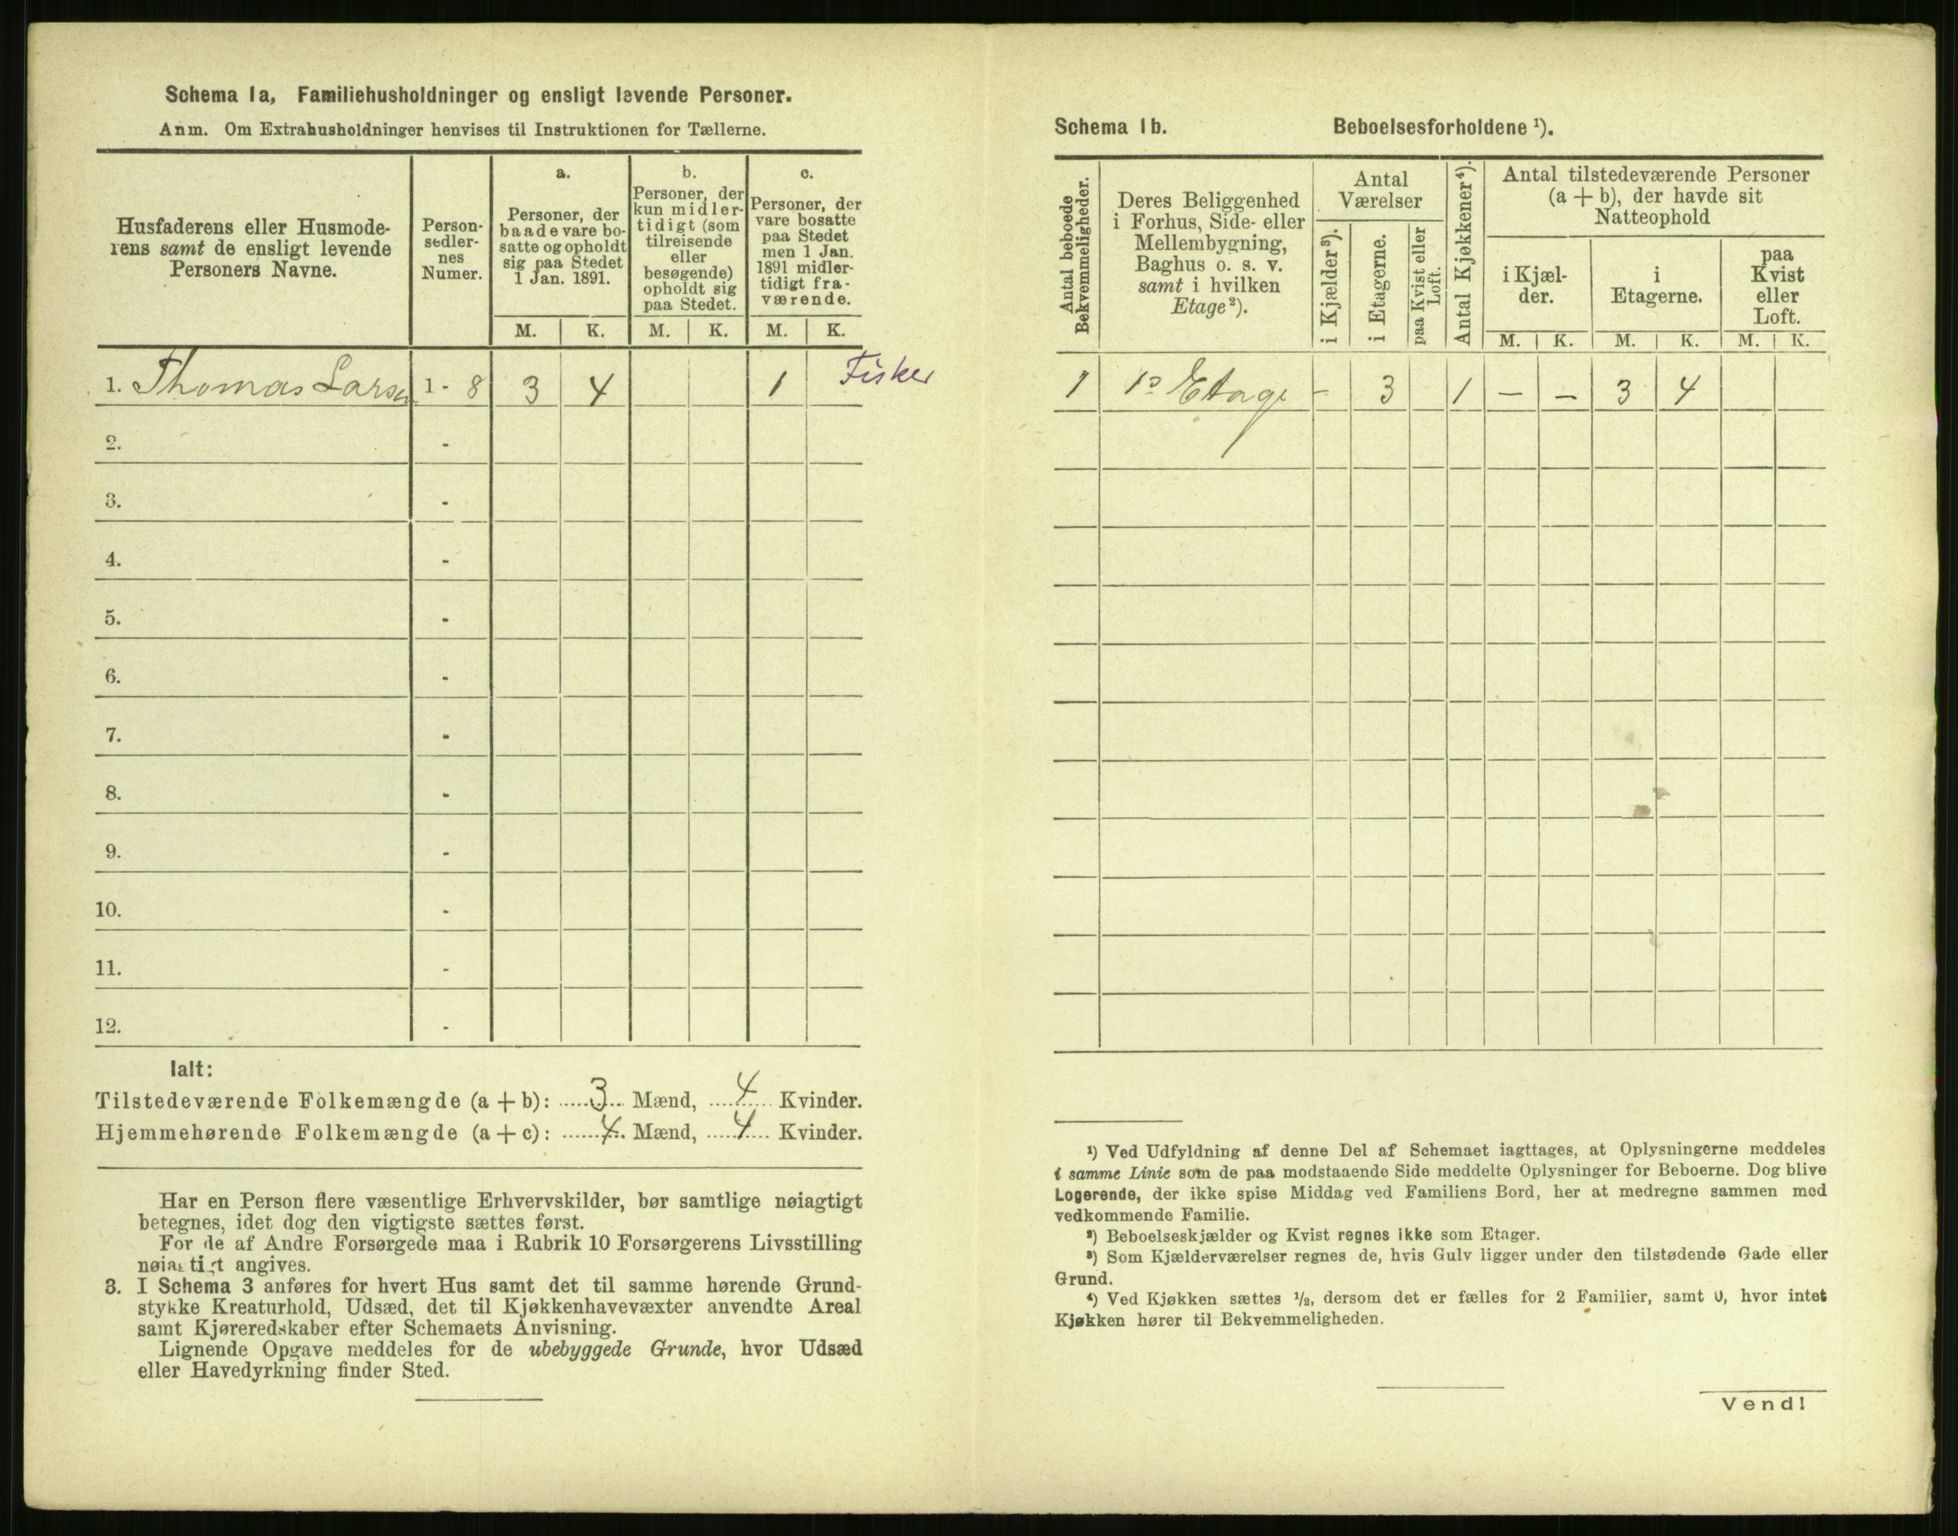 Schema 1a, Familiehusholdninger og ensligt levende Personer.
Anm. Om Extrahusholdninger henvises til Instruktionen for Tællerne.
Husfaderens eller Husmode-
rens samt de ensligt levende
Personers Navne.
Person-
sedler-
nes
Numer.
a.
Personer, der
baade vare bo-
satte og opholdt
sig paa Stedet
1 Jan. 1891.
b.
Personer, der
kun midler-
tidigt (som
tilreisende
eller
besøgende)
opholdt sig
paa Stedet.
c.
Personer, der
vare bosatte
paa Stedet
men 1 Jan.
1891 midler-
tidigt fra-
værende.
M. K. M. K. M. K.
1. Thomas Larsen 1 - 8 3 4 1 Fisker
2. -
3. -
4. -
5. -
6. -
7. -
8. -
9. -
10. -
11. -
12. -
Ialt:
Tilstedeværende Folkemængde (a + b): 3 Mænd, 4 Kvinder.
Hjemmehørende Folkemængde (a + c): 4 Mænd, 4 Kvinder.
Har en Person flere væsentlige Erhvervskilder, bør samtlige nøiagtigt
betegnes, idet dog den vigtigste sættes først.
For de af Andre Forsørgede maa i Rubrik 10 Forsørgerens Livsstilling
nøiagtigt angives.
3. I Schema 3 anføres for hvert Hus samt det til samme hørende Grund-
stykke Kreaturhold, Udsæd, det til Kjøkkenhavevæxter anvendte Areal
samt Kjøreredskaber efter Schemaets Anvisning.
Lignende Opgave meddeles for de ubebyggede Grunde, hvor Udsæd
eller Havedyrkning finder Sted.
Schema 1b. Beboelsesforholdene ¹).
Antal beboede
Bekvemmeligheder.
Deres Beliggenhed
i Forhus, Side- eller
Mellembygning,
Baghus o. s. v.
samt i hvilken
Etage²).
Antal
Værelser
i Kjælder³).
i Etagerne.
paa Kvist eller
Loft.
Antal Kjøkkener⁴).
Antal tilstedeværende Personer
(a + b), der havde sit
Natteophold
i Kjæl-
der.
i
Etagerne.
paa
Kvist
eller
Loft.
M. K. M. K. M. K.
1 1ˢ Etage - 3 1 - - 3 4
¹) Ved Udfyldning af denne Del af Schemaet iagttages, at Oplysningerne meddeles
i samme Linie som de paa modstaaende Side meddelte Oplysninger for Beboerne. Dog blive
Logerende, der ikke spise Middag ved Familiens Bord, her at medregne sammen med
vedkommende Familie.
²) Beboelseskjælder og Kvist regnes ikke som Etager.
³) Som Kjælderværelser regnes de, hvis Gulv ligger under den tilstødende Gade eller
Grund.
⁴) Ved Kjøkken sættes ½, dersom det er fælles for 2 Familier, samt 0, hvor intet
Kjøkken hører til Bekvemmeligheden.
Vend!